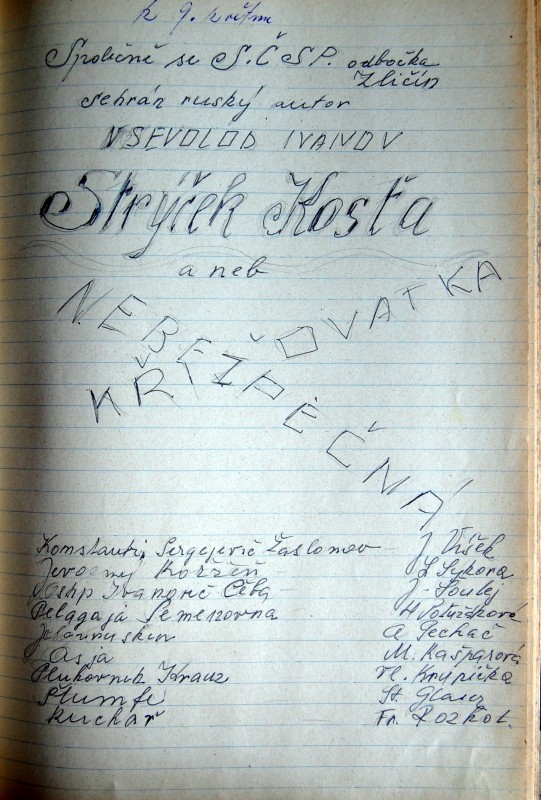 k 9. květnu
Společně se S.Č.S.P. odbočka
Zličín
sehrán ruský autor
VSEVOLOD IVANOV
Strýček Kosťa
a neb
NEBEZPEČNÁ
KŘIŽOVATKA
Konstantin Sergejevič Zaslonov J. Vlšek
Jevgenij Koržeň L Sykora
Osip Ivanovič Céba J. Soulej
Pelagaja Semenovna
A Pechač
Asja M. Kašparová
Plukovník Krauz Vl. Krupička
Štumfe St. Glaser
kuchař Fr. Rozkot.